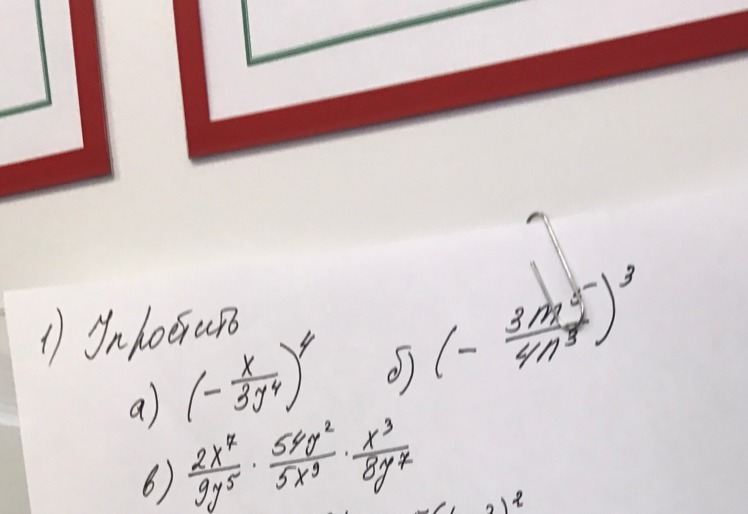 1) Упростить
а) (- x/3y⁴)⁴ б) (- 3m⁵/4n³)³
в) 2x⁷/9y⁵ · 54y²/5x⁹ · x³/8y⁷